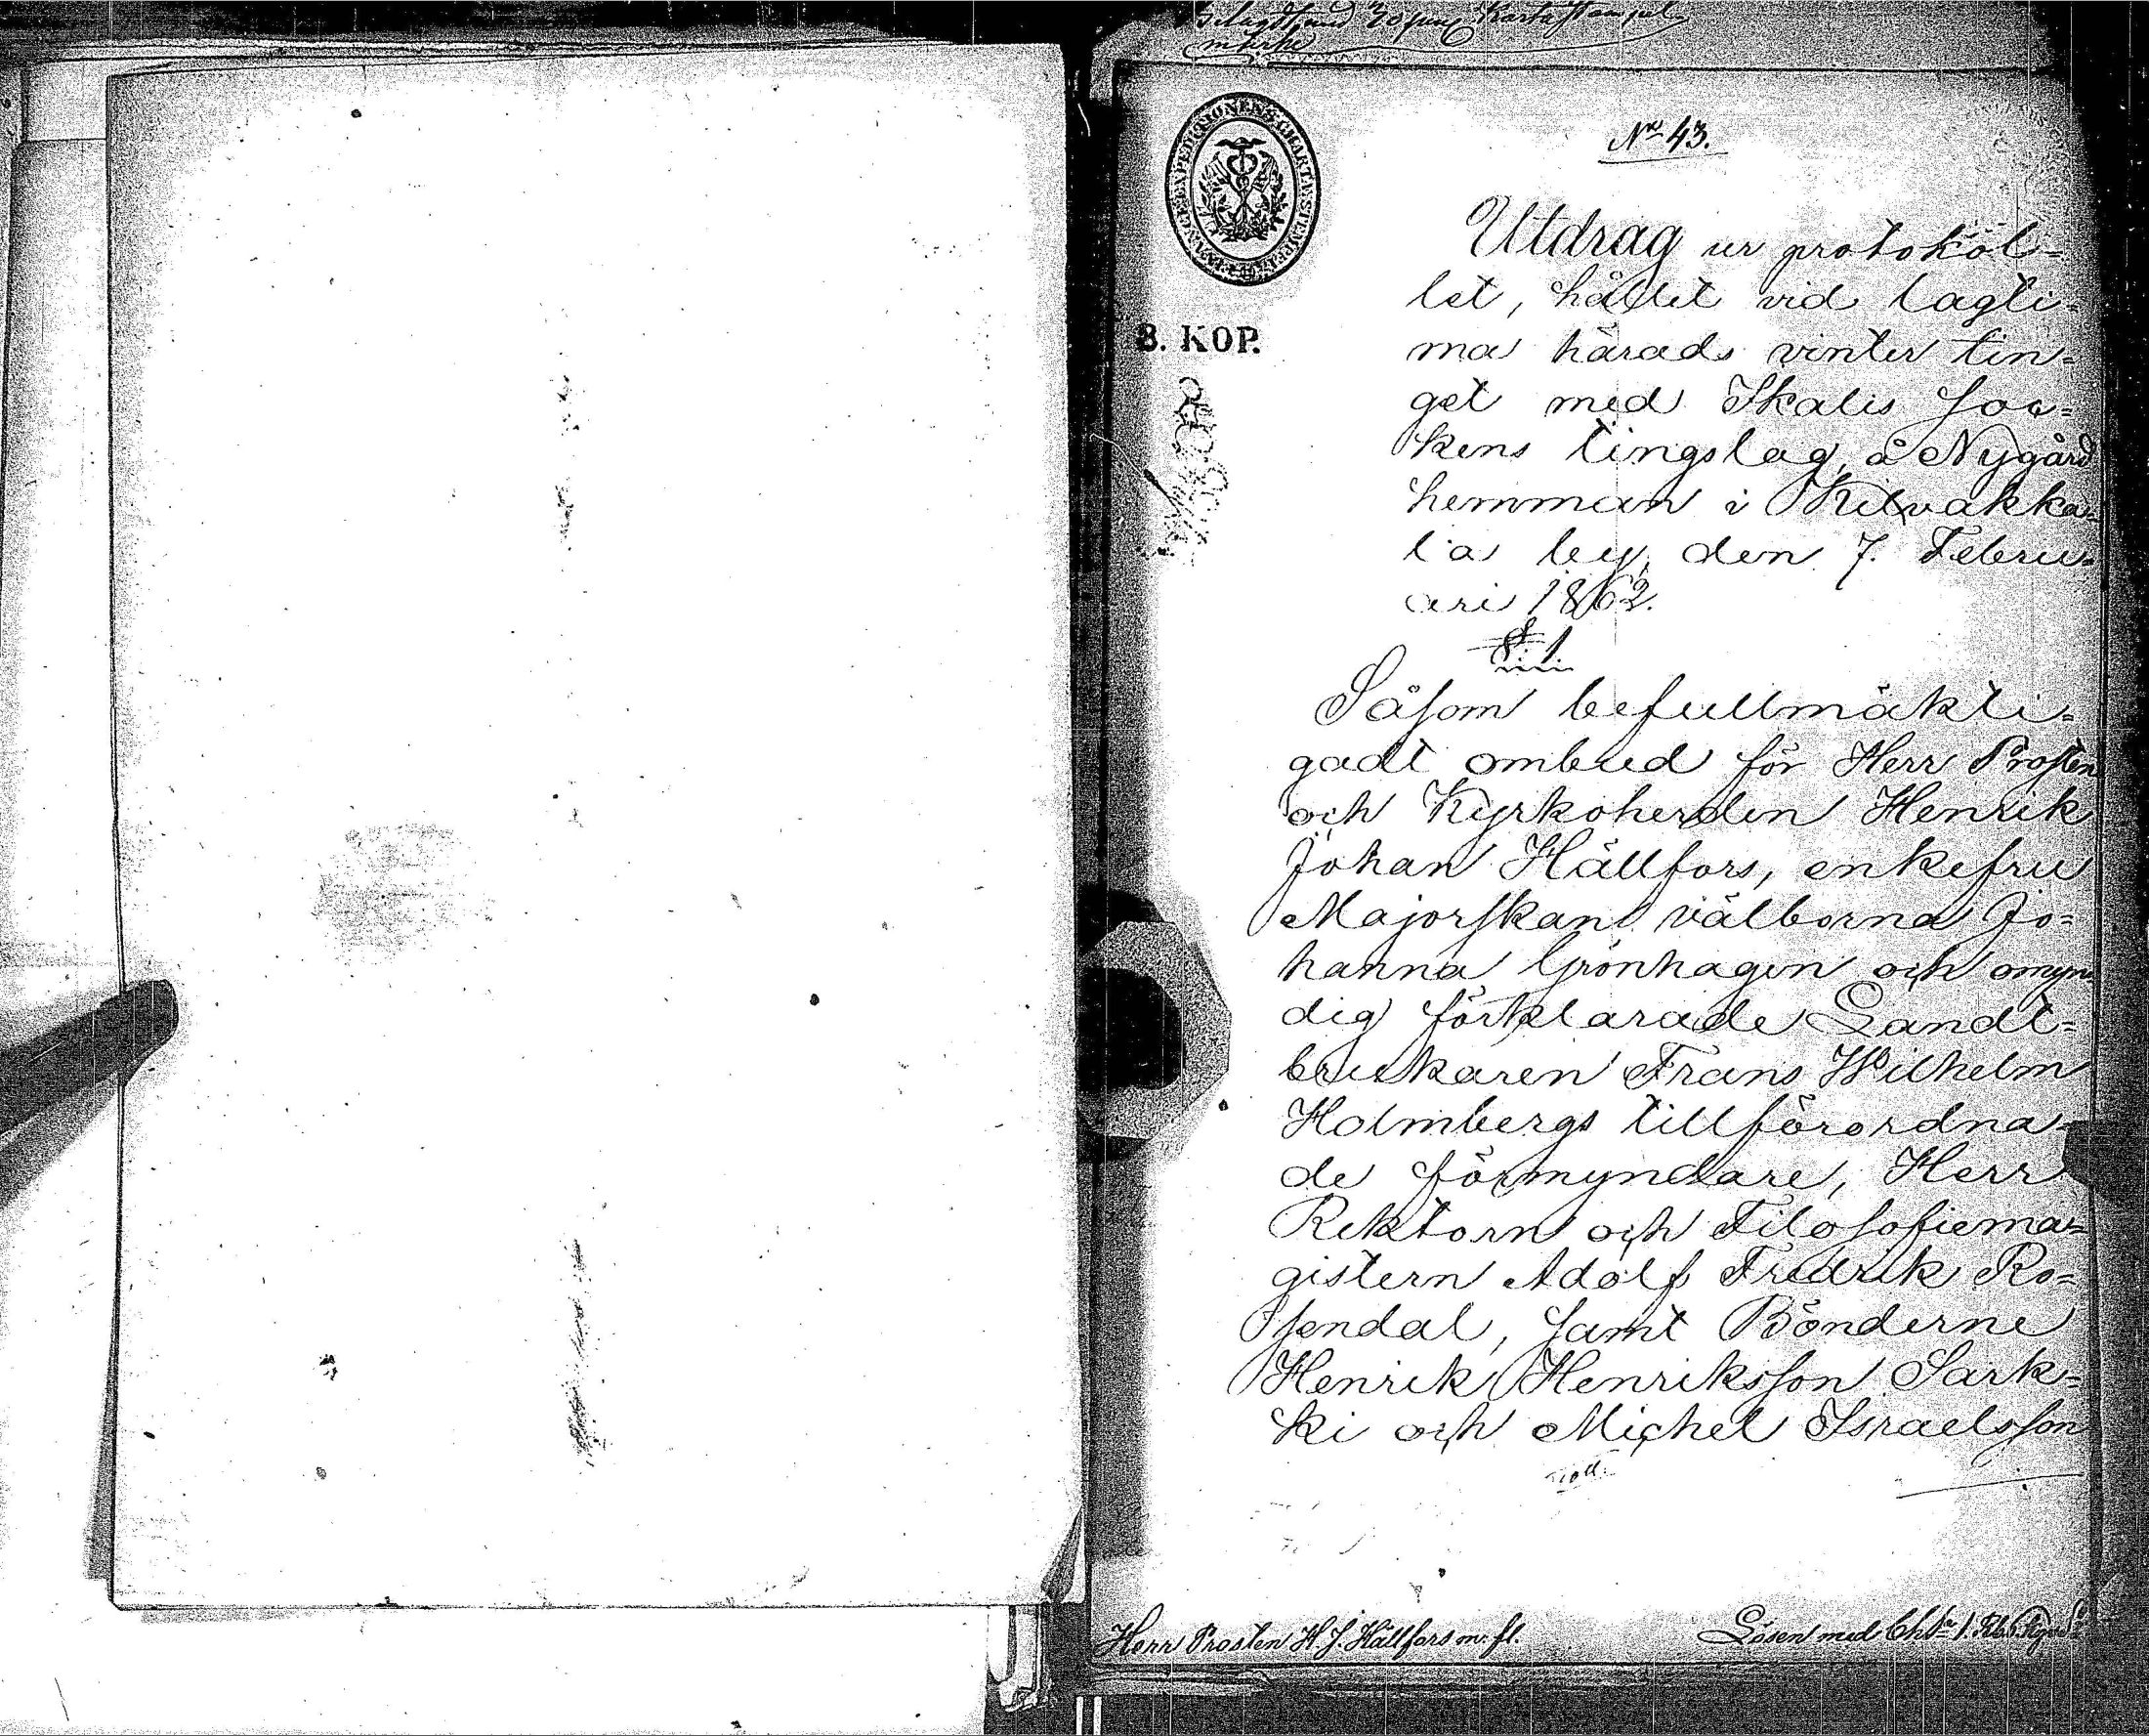 märke
Nro 43.
FINANCE EXPEDITIONENS CHARTÆ STEMPEL
8. KOP.
Utdrag ur protokol=
let, hållet vid lagti=
ma härads vinter tin=
get med Ikalis soc=
kens tingslag, å Nygård
hemman i Kilvakka=
la by, den 7. Febru=
ari 1862.
§ 1
Såsom befullmäkti=
gadt ombud för Herr Prosten
och Kyrkoherden Henrik
Johan Hällfors, enkefru
Majorskan välborna Jo=
hanna Grönhagen och omyn=
dig förklarade Landt=
brukaren Frans Wilhelm
Holmbergs tillförordna=
de förmyndare, Herr
Rektorn och Filosofiema=
gistern Adolf Fredrik Ro=
sendal, samt Bönderne
Henrik Henriksson Sark=
ki och Michel Israelsson
Herr Prosten H. J. Hällfors m. fl.
Lösen med Ch. 1. Rb.